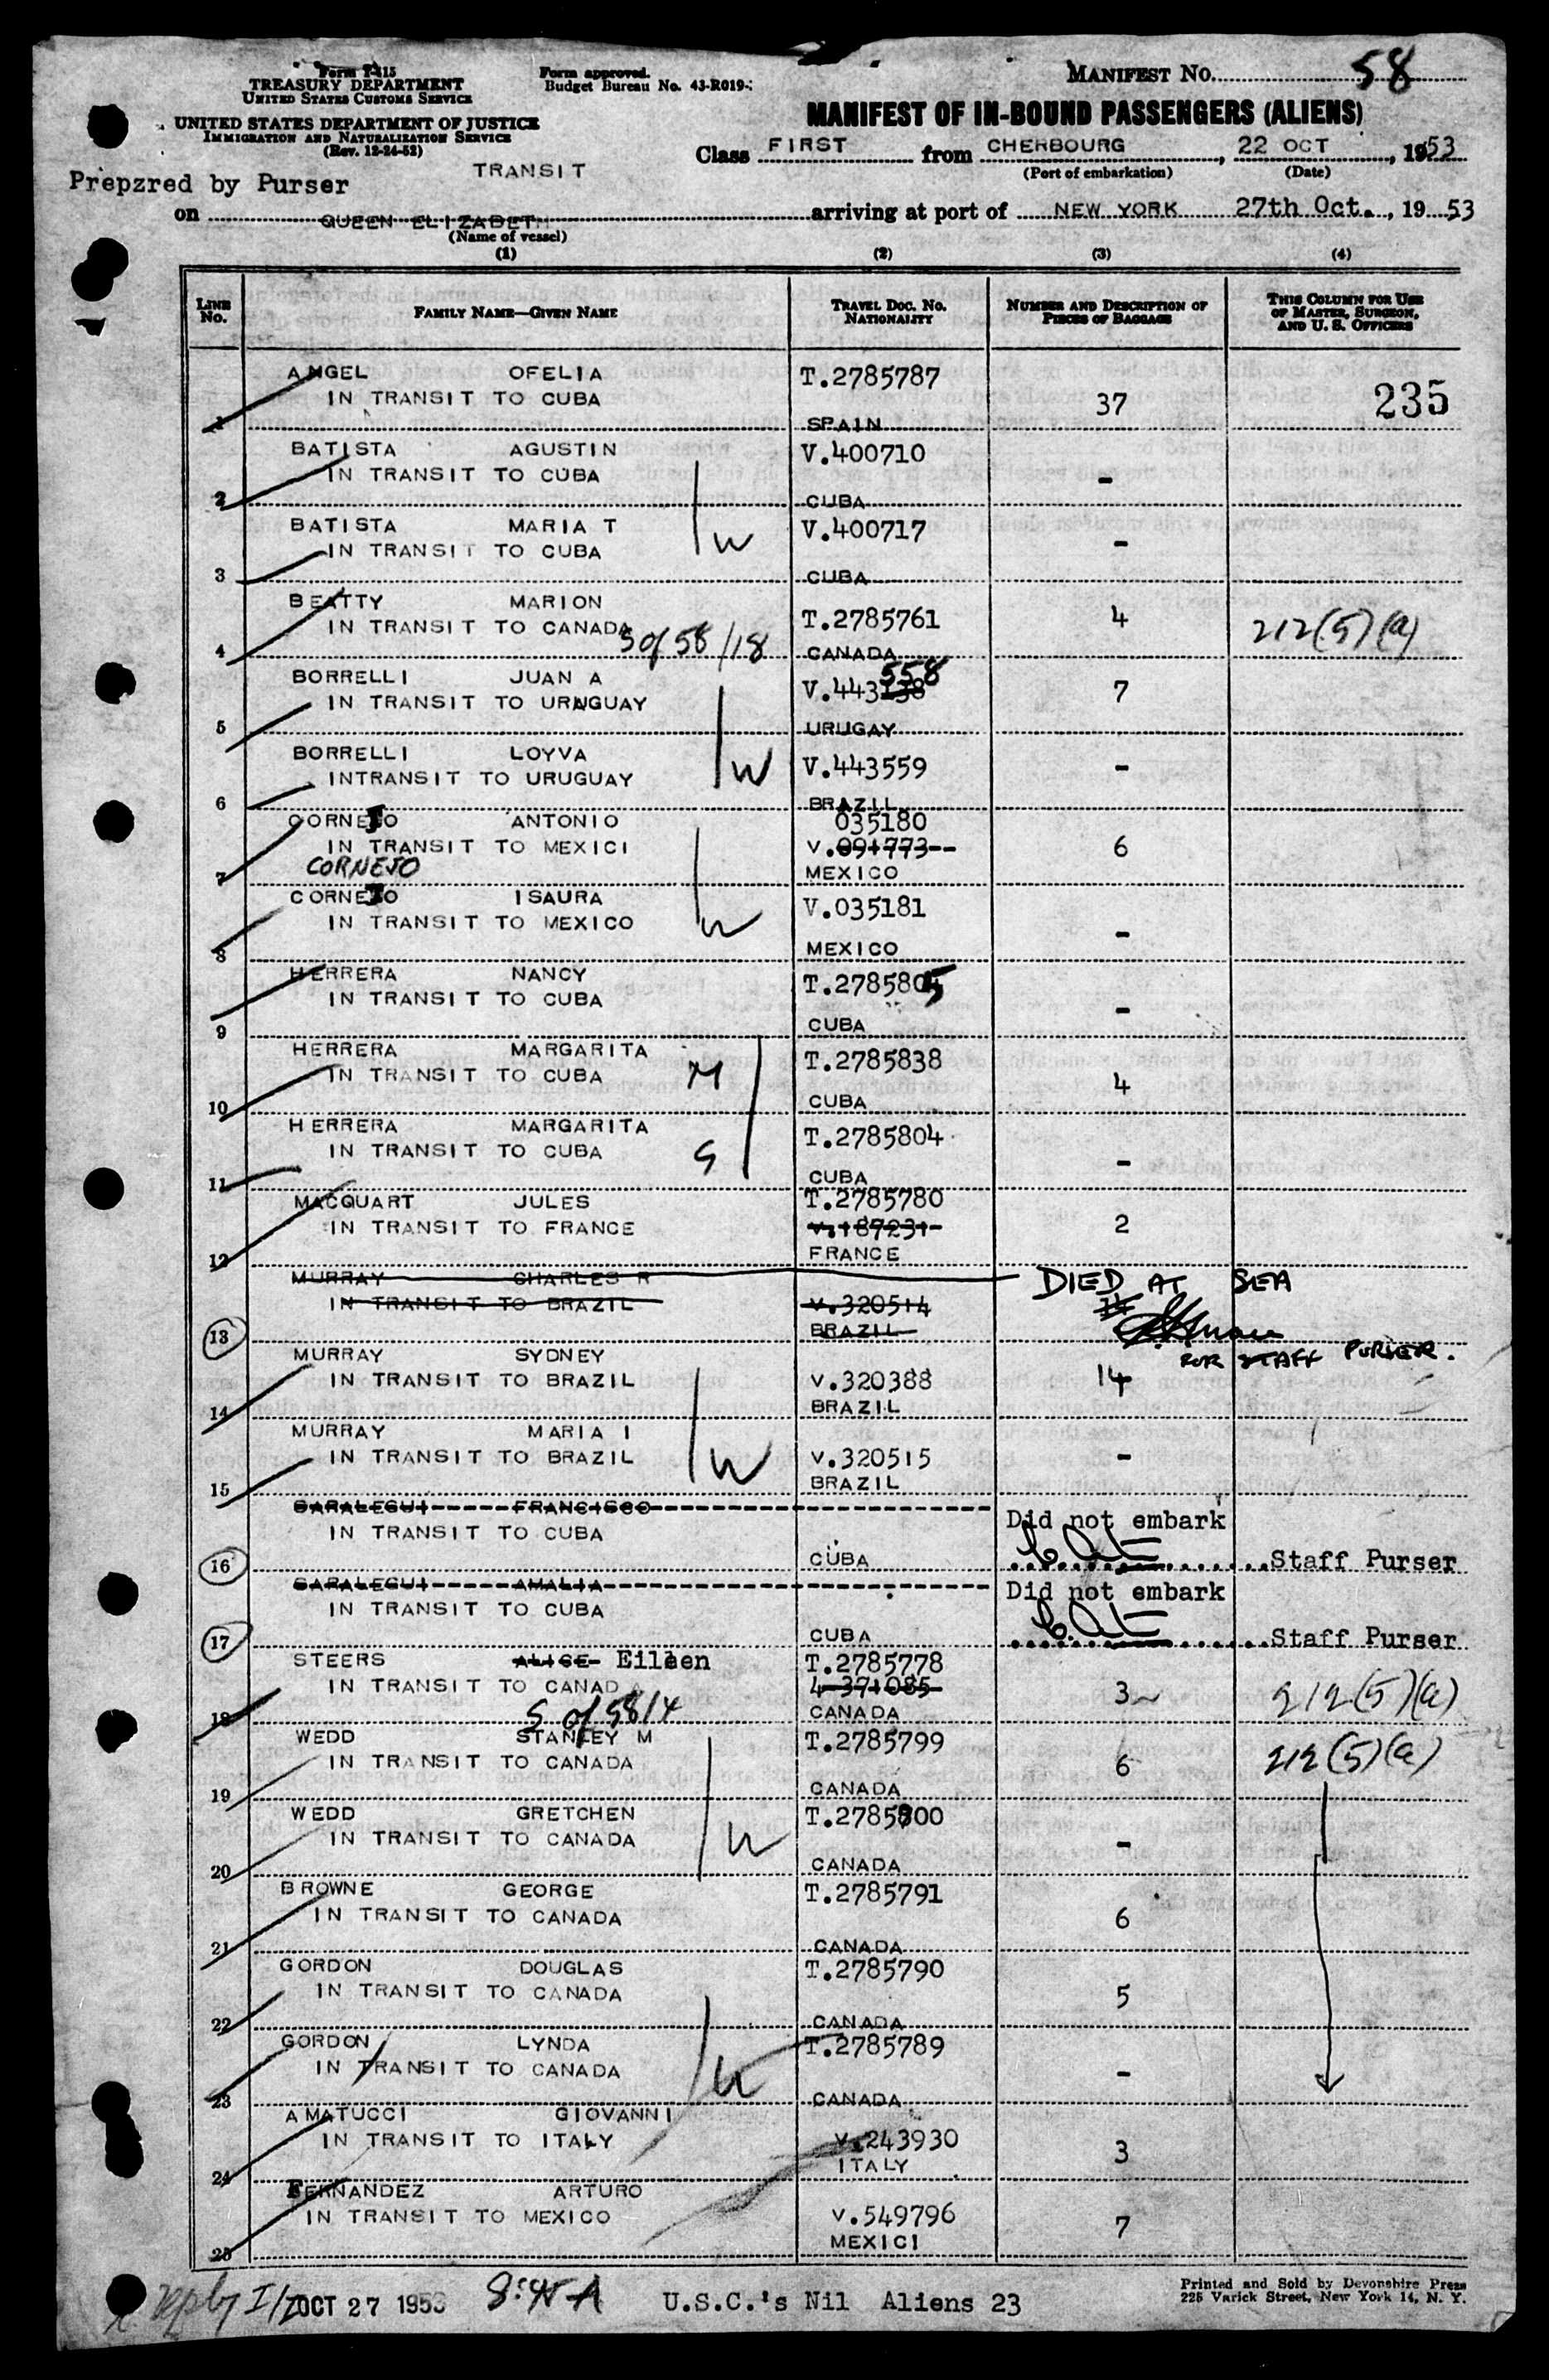 Form I-415
TREASURY DEPARTMENT
UNITED STATES CUSTOMS SERVICE
UNITED STATES DEPARTMENT OF JUSTICE
IMMIGRATION AND NATURALIZATION SERVICE
(Rev. 12-24-52)
Form approved.
Budget Bureau No. 43-R019-
MANIFEST NO. 58
MANIFEST OF IN-BOUND PASSENGERS (ALIENS)
Class FIRST from CHERBOURG, 22 OCT, 1953
(Port of embarkation) (Date)
TRANSIT
Prepzred by Purser
on QUEEN ELIZABETH arriving at port of NEW YORK 27th Oct., 1953
(Name of vessel)
(1) (2) (3) (4)
LINE No. FAMILY NAME—GIVEN NAME TRAVEL DOC. NO. NATIONALITY NUMBER AND DESCRIPTION OF PIECES OF BAGGAGE THIS COLUMN FOR USE OF MASTER, SURGEON, AND U. S. OFFICERS
ANGEL OFELIA T.2785787
IN TRANSIT TO CUBA 37 235
1 SPAIN
BATISTA AGUSTIN V.400710
IN TRANSIT TO CUBA -
2 CUBA
BATISTA MARIA T V.400717
IN TRANSIT TO CUBA W -
3 CUBA
BEATTY MARION T.2785761 4
IN TRANSIT TO CANADA 212(5)(a)
4 5 of 58/18 CANADA
BORRELLI JUAN A V.443138 558 7
IN TRANSIT TO URNGUAY
5 URUGAY
BORRELLI LOYVA V.443559
INTRANSIT TO URUGUAY W -
6 BRAZIL
CORNEJO ANTONIO 035180
IN TRANSIT TO MEXICI V.091773-- 6
7 CORNEJO MEXICO
CORNEJO ISAURA V.035181
IN TRANSIT TO MEXICO W -
8 MEXICO
HERRERA NANCY T.2785805
IN TRANSIT TO CUBA -
9 CUBA
HERRERA MARGARITA T.2785838
IN TRANSIT TO CUBA M 4
10 CUBA
HERRERA MARGARITA T.2785804
IN TRANSIT TO CUBA S -
11 CUBA
MACQUART JULES T.2785780
IN TRANSIT TO FRANCE V.187231- 2
12 FRANCE
MURRAY CHARLES R DIED AT SEA
IN TRANSIT TO BRAZIL V.320514
13 BRAZIL
FOR STAFF PURSER.
MURRAY SYDNEY
IN TRANSIT TO BRAZIL V.320388 14
14 BRAZIL
MURRAY MARIA I
IN TRANSIT TO BRAZIL W V.320515 -
15 BRAZIL
SARALEGUI-----FRANCISCO
IN TRANSIT TO CUBA Did not embark
16 CUBA Staff Purser
SARALEGUI-----AMALIA
IN TRANSIT TO CUBA Did not embark
17 CUBA Staff Purser
STEERS ALICE- Eileen T.2785778
IN TRANSIT TO CANADA 4-371085- 3 212(5)(a)
18 5 of 58/4 CANADA
WEDD STANLEY M T.2785799
IN TRANSIT TO CANADA 6 212(5)(a)
19 CANADA
WEDD GRETCHEN T.2785800
IN TRANSIT TO CANADA W -
20 CANADA
BROWNE GEORGE T.2785791
IN TRANSIT TO CANADA 6
21 CANADA
GORDON DOUGLAS T.2785790
IN TRANSIT TO CANADA 5
22 CANADA
GORDON LYNDA T.2785789
IN TRANSIT TO CANADA W -
23 CANADA
AMATUCCI GIOVANNI
IN TRANSIT TO ITALY V.243930 3
24 ITALY
FERNANDEZ ARTURO
IN TRANSIT TO MEXICO V.549796 7
25 MEXICI
OCT 27 1953 8:45A U.S.C.'s Nil Aliens 23
Printed and Sold by Devonshire Press
225 Varick Street, New York 14, N. Y.